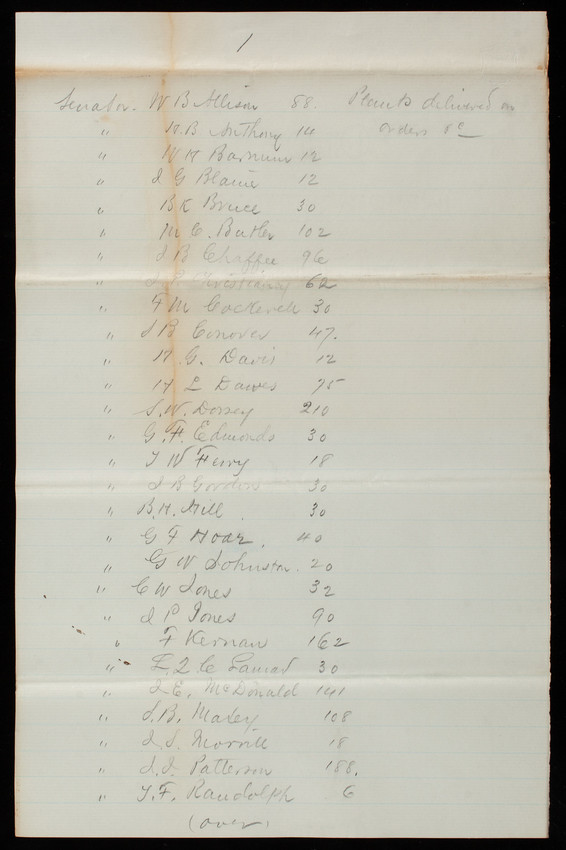 1
Senator. W B Allison 88. Plants delivered on
" H.B Anthony 14 orders &c
" W H Barnum 12
" J G Blaine 12
" B K Bruce 30
" M C. Butler 102
" J B Chaffee 96
" I. P. Christiancy 62
" F M Cockerell 30
" S B Conover 47.
" H. G. Davis 12
" H L Dawes 75
" S. W. Dorsey 210
" G. F. Edmonds 30
" T W Ferry 18
" J B Gordon 30
" B. H. Hill. 30
" G F Hoar. 40
" G W Johnston. 20
" C W Jones 32
" J P Jones 90
" F Kernan 162
" L. Q C Lamar 30
" J. E. McDonald 141
" S. B. Maxey. 108
" J. S. Morrill 18
" J. J. Patterson 188.
" T. F. Randolph 6
(over)